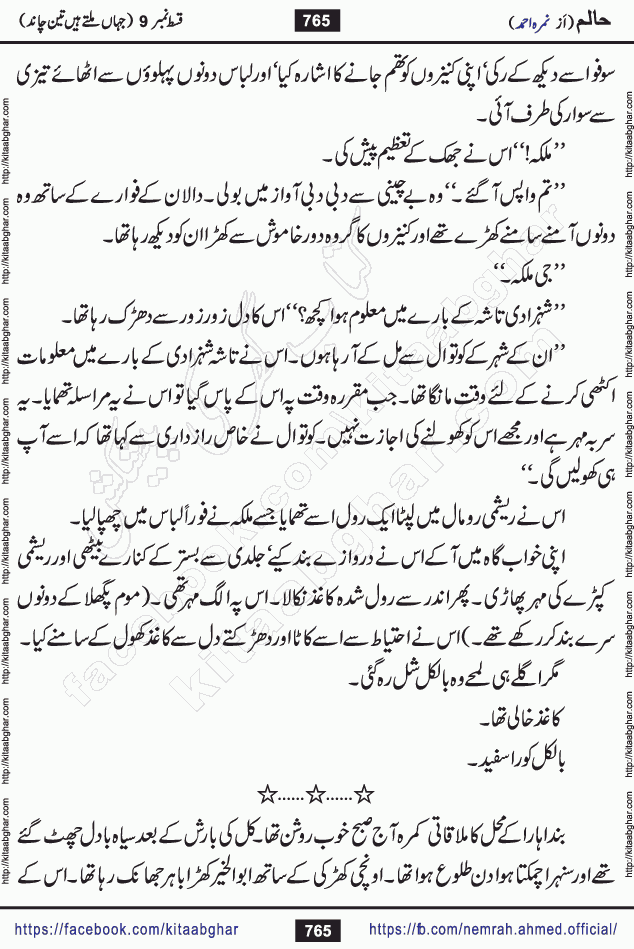 حالم (از نمرہ احمد)
765
قسط نمبر 9 (جہاں ملتے ہیں تین چاند)
سوفو اسے دیکھ کے رکی‘ اپنی کنیزوں کو تھم جانے کا اشارہ کیا‘ اور لباس دونوں پہلوؤں سے اٹھائے تیزی
سے سوار کی طرف آئی۔
’’ملکہ!‘‘ اس نے جھک کے تعظیم پیش کی۔
’’تم واپس آ گئے۔‘‘ وہ بے چینی سے دبی دبی آواز میں بولی۔ دالان کے فوارے کے ساتھ وہ
دونوں آمنے سامنے کھڑے تھے اور کنیزوں کا گروہ دور خاموش سے کھڑا ان کو دیکھ رہا تھا۔
’’جی ملکہ۔‘‘
’’شہزادی تاشہ کے بارے میں معلوم ہوا کچھ؟‘‘ اس کا دل زور زور سے دھڑک رہا تھا۔
’’ان کے شہر کے کوتوال سے مل کے آ رہا ہوں۔ اس نے تاشہ شہزادی کے بارے میں معلومات
اکٹھی کرنے کے لئے وقت مانگا تھا۔ جب مقررہ وقت پہ اس کے پاس گیا تو اس نے یہ مراسلہ تھمایا۔ یہ
سر بہ مہر ہے اور مجھے اس کو کھولنے کی اجازت نہیں۔ کوتوال نے خاص رازداری سے کہا تھا کہ اسے آپ
ہی کھولیں گی۔‘‘
اس نے ریشمی رومال میں لپٹا ایک رول اسے تھمایا جسے ملکہ نے فوراً لباس میں چھپا لیا۔
اپنی خواب گاہ میں آ کے اس نے دروازے بند کیے‘ جلدی سے بستر کے کنارے بیٹھی اور ریشمی
کپڑے کی مہر پھاڑی۔ پھر اندر سے رول شدہ کاغذ نکالا۔ اس پہ الگ مہر تھی۔ (موم پگھلا کے دونوں
سرے بند کر رکھے تھے۔) اس نے احتیاط سے اسے کاٹا اور دھڑکتے دل سے کاغذ کھول کے سامنے کیا۔
مگر اگلے ہی لمحے وہ بالکل شل رہ گئی۔
کاغذ خالی تھا۔
بالکل کورا سفید۔
☆......☆......☆
بنداہارا کے محل کا ملاقاتی کمرہ آج صبح خوب روشن تھا۔ کل کی بارش کے بعد سیاہ بادل چھٹ گئے
تھے اور سنہرا چمکتا ہوا دن طلوع ہوا تھا۔ اونچی کھڑکی کے ساتھ ابوالخیر کھڑا باہر جھانک رہا تھا۔ اس کے
http://kitaabghar.com http://kitaabghar.com http://kitaabghar.com http://kitaabghar.com http://kitaabghar.com http://kitaabghar.com http://kitaabghar.com http://kitaabghar.com
http://kitaabghar.com http://kitaabghar.com http://kitaabghar.com http://kitaabghar.com http://kitaabghar.com http://kitaabghar.com http://kitaabghar.com http://kitaabghar.com
کتاب گھر کی پیشکش
facebook.com/kitaabghar
kitaabghar.com
https://facebook.com/kitaabghar
765
https://fb.com/nemrah.ahmed.official/